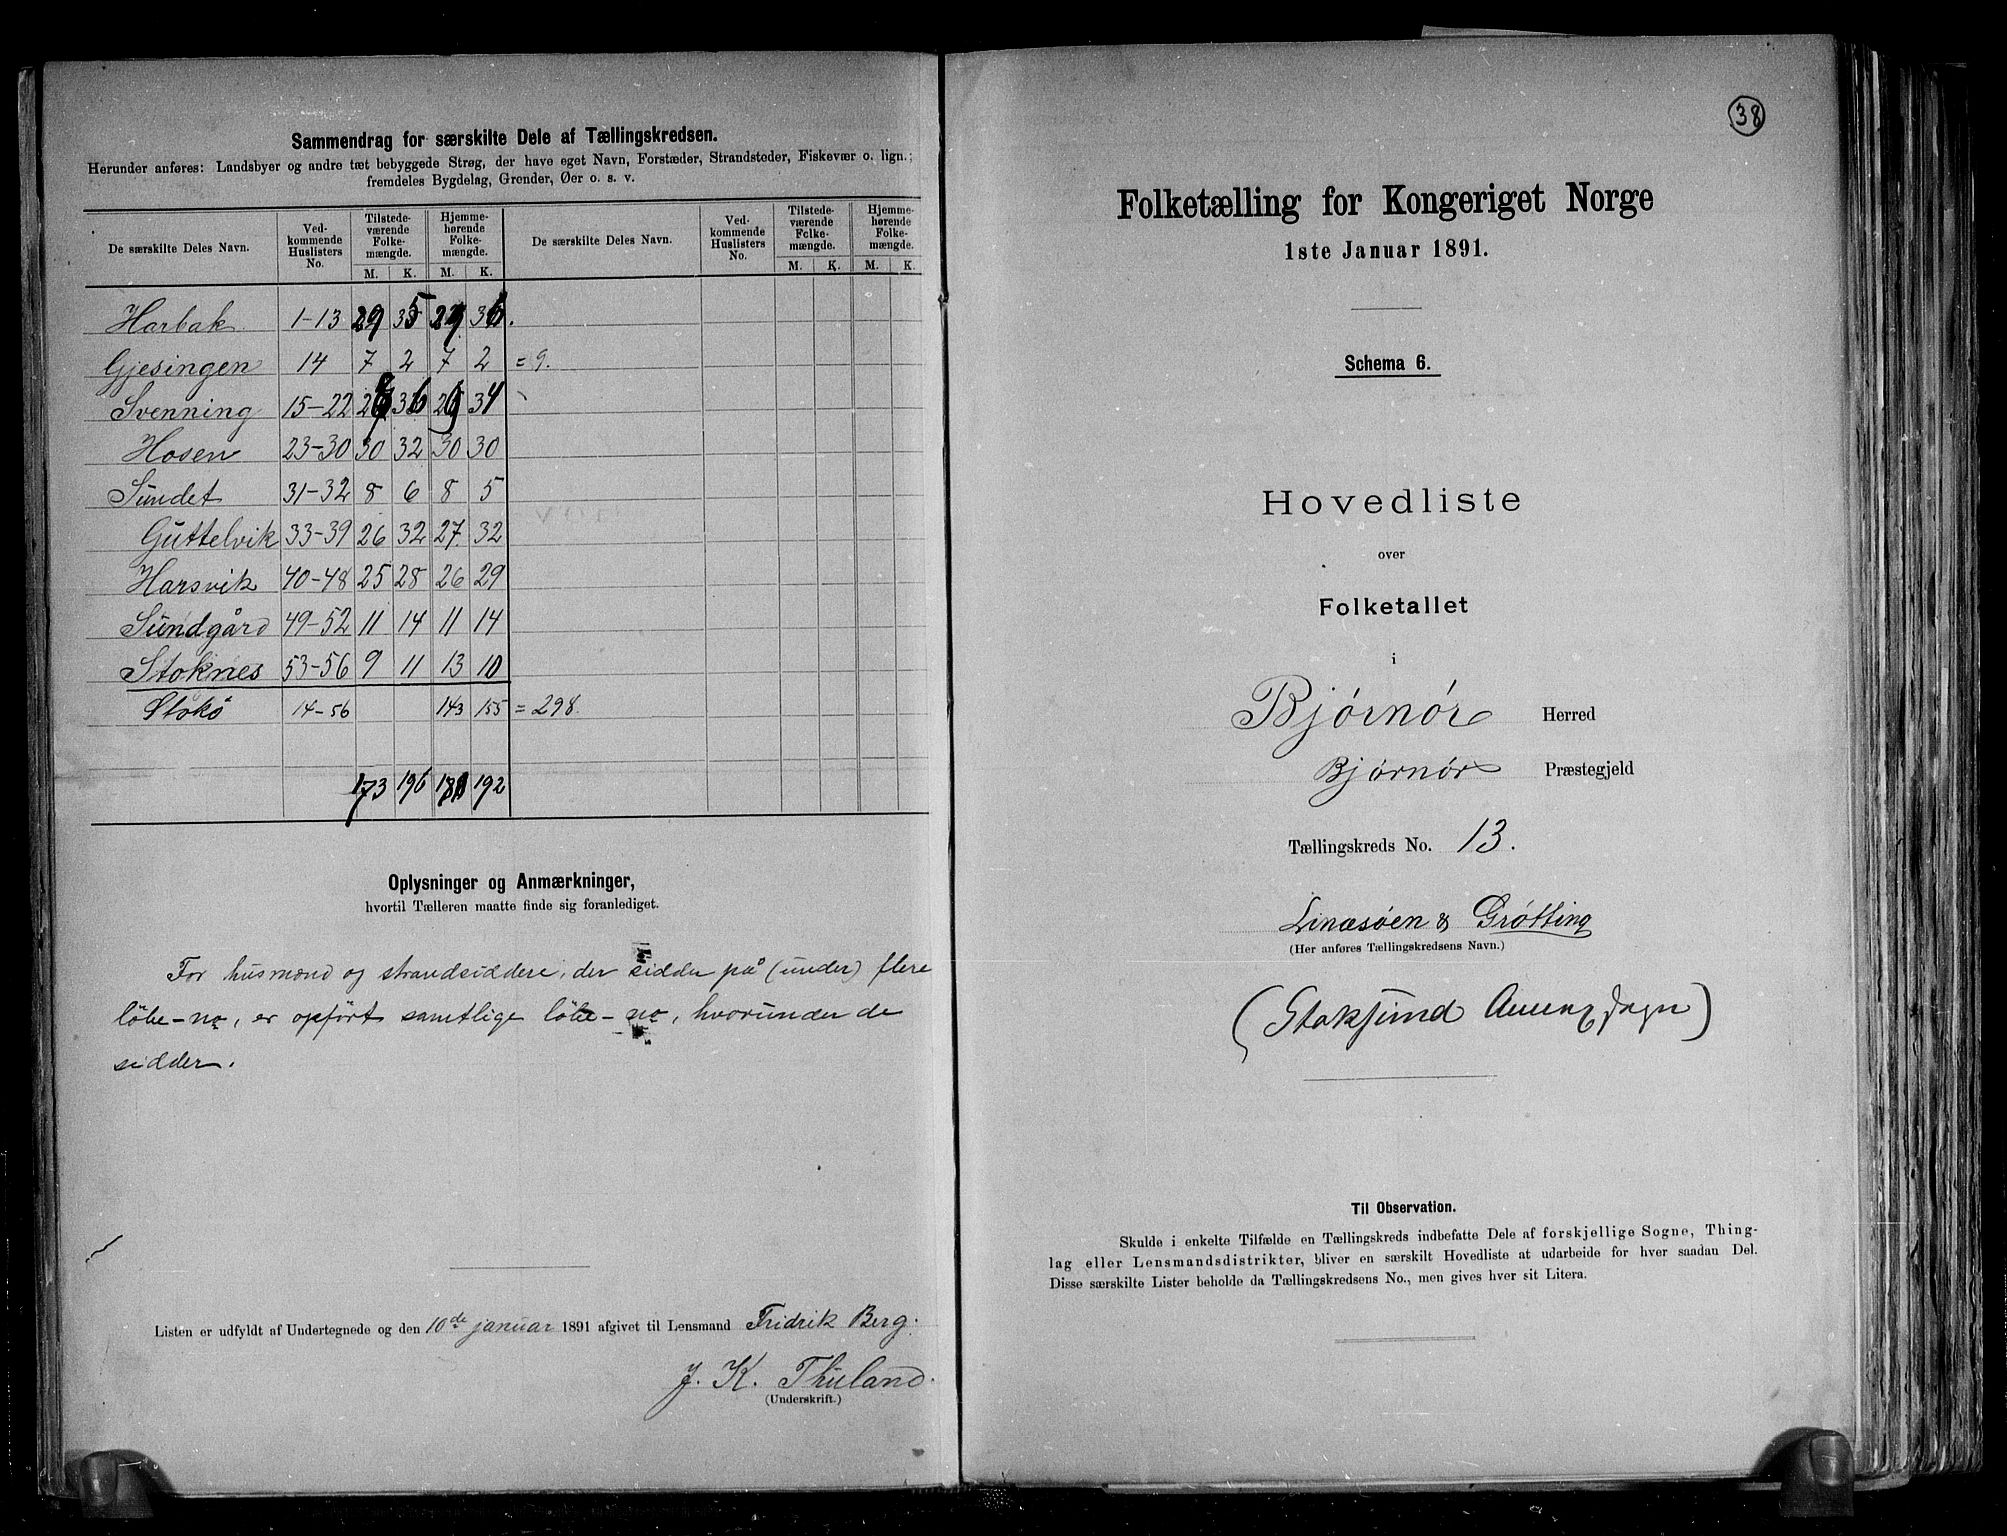 Sammendrag for særskilte Dele af Tællingskredsen.
Herunder anføres: Landsbyer og andre tæt bebyggede Strøg, der have eget Navn, Forstæder, Strandsteder, Fiskevær o. lign.;
fremdeles Bygdelag, Grender, Øer o. s. v.
De særskilte Deles Navn. Ved-kommende Huslisters No. Tilstede-værende Folke-mængde. Hjemme-hørende Folke-mængde. De særskilte Deles Navn. Ved-kommende Huslisters No. Tilstede-værende Folke-mængde. Hjemme-hørende Folke-mængde.
M. K. M. K. M. K. M. K.
Harbak 1-13 29 35 36.
Gjesingen 14 7 2 7 2 = 9.
Svenning 15-22 36 34
Hosen 23-30 30 32 30 30
Sundet 31-32 8 6 8 5
Guttelvik 33-39 26 32 27. 32
Harsvik 40-48 25 28 26 29
Sundgård 49-52 11 14 11 14
Stoknes 53-56 9 11 13 10
Stokö 14-56 143 155 = 298.
173 196 192
Oplysninger og Anmærkninger,
hvortil Tælleren maatte finde sig foranlediget.
For husmænd og strandsiddere, der sidder på (under) flere
löbe-no, er opført samtlige löbe-no, hvorunder de
sidder.
Listen er udfyldt af Undertegnede og den 10de januar 1891 afgivet til Lensmand Fridrik Berg.
J. K. Thuland.
(Underskrift.)
38
Folketælling for Kongeriget Norge
1ste Januar 1891.
Schema 6.
Hovedliste
over
Folketallet
i
Bjørnør Herred
Bjørnør Præstegjeld
Tællingskreds No. 13.
Linæsøen & Grøtting
(Her anføres Tællingskredsens Navn.)
(Stoksund Annexsogn)
Til Observation.
Skulde i enkelte Tilfælde en Tællingskreds indbefatte Dele af forskjellige Sogne, Thing-
lag eller Lensmandsdistrikter, bliver en særskilt Hovedliste at udarbeide for hver saadan Del.
Disse særskilte Lister beholde da Tællingskredsens No., men gives hver sit Litera.